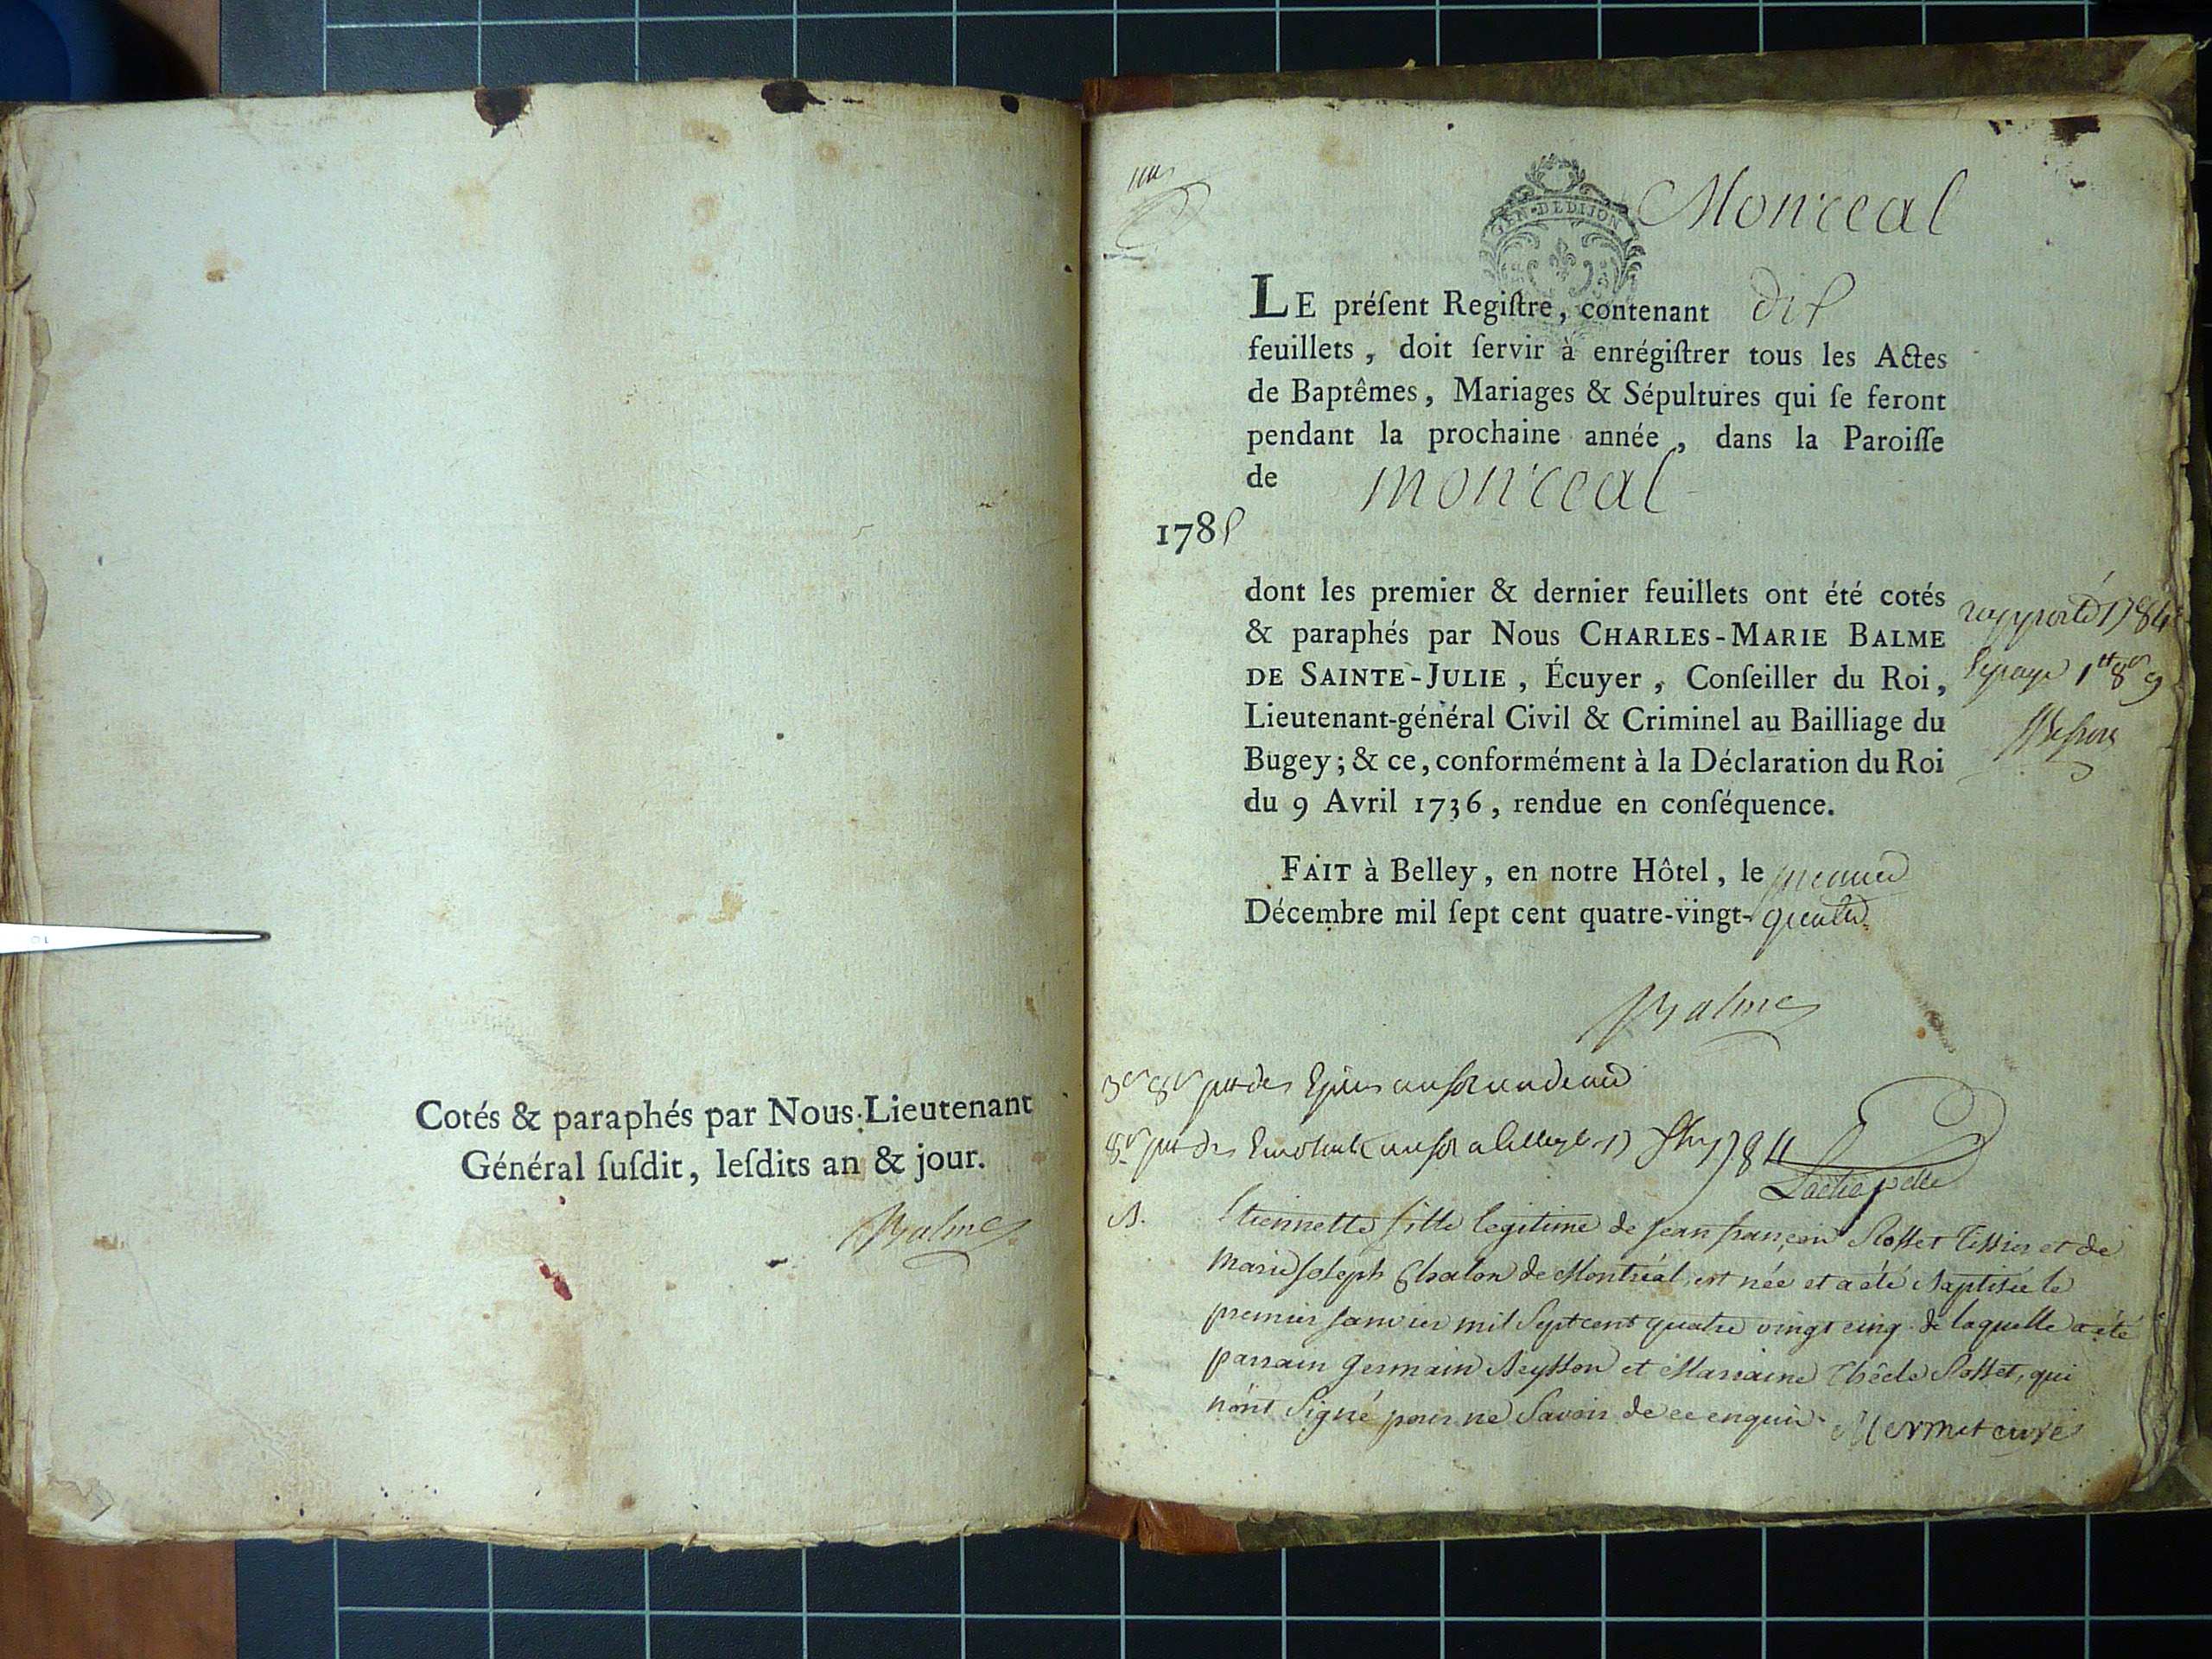 Cotés & paraphés par Nous Lieutenant
Général ſuſdit, leſdits an & jour.
Balme
GEN · DE DIJON
Montreal
LE préſent Regiſtre, contenant dix
feuillets, doit ſervir à enrégiſtrer tous les Actes
de Baptêmes, Mariages & Sépultures qui ſe feront
pendant la prochaine année, dans la Paroiſſe
de montreal
1785
dont les premier & dernier feuillets ont été cotés
& paraphés par Nous CHARLES-MARIE BALME
DE SAINTE-JULIE, Écuyer, Conſeiller du Roi,
Lieutenant-général Civil & Criminel au Bailliage du
Bugey; & ce, conformément à la Déclaration du Roi
du 9 Avril 1736, rendue en conſéquence.
rapporté 1784
FAIT à Belley, en notre Hôtel, le premier
Décembre mil ſept cent quatre-vingt-quatre
Balme
1784
Lachapelle
B. Etiennette fille legitime de jean françois Rosset Tissier et de
marie joseph Chalon de Montréal, est née et a été Baptisée le
premier janvier mil Sept cent quatre vingt cinq de laquelle a été
parrain germain Neysson et Marraine Thêcle Rosset, qui
n'ont Signé pour ne Savoir de ce enquis. Mermet curé